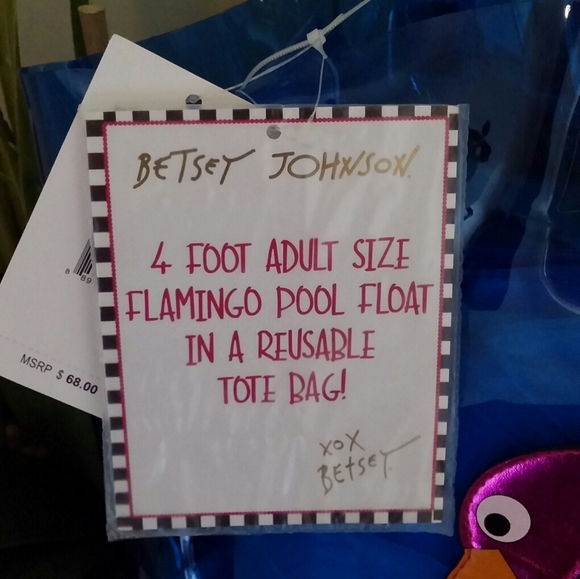 BETSEY JOHNSON.
4 FOOT ADULT SIZE
FLAMINGO POOL FLOAT
IN A REUSABLE
TOTE BAG!
XOX
BETSEY
8 89
MSRP $ 68.00